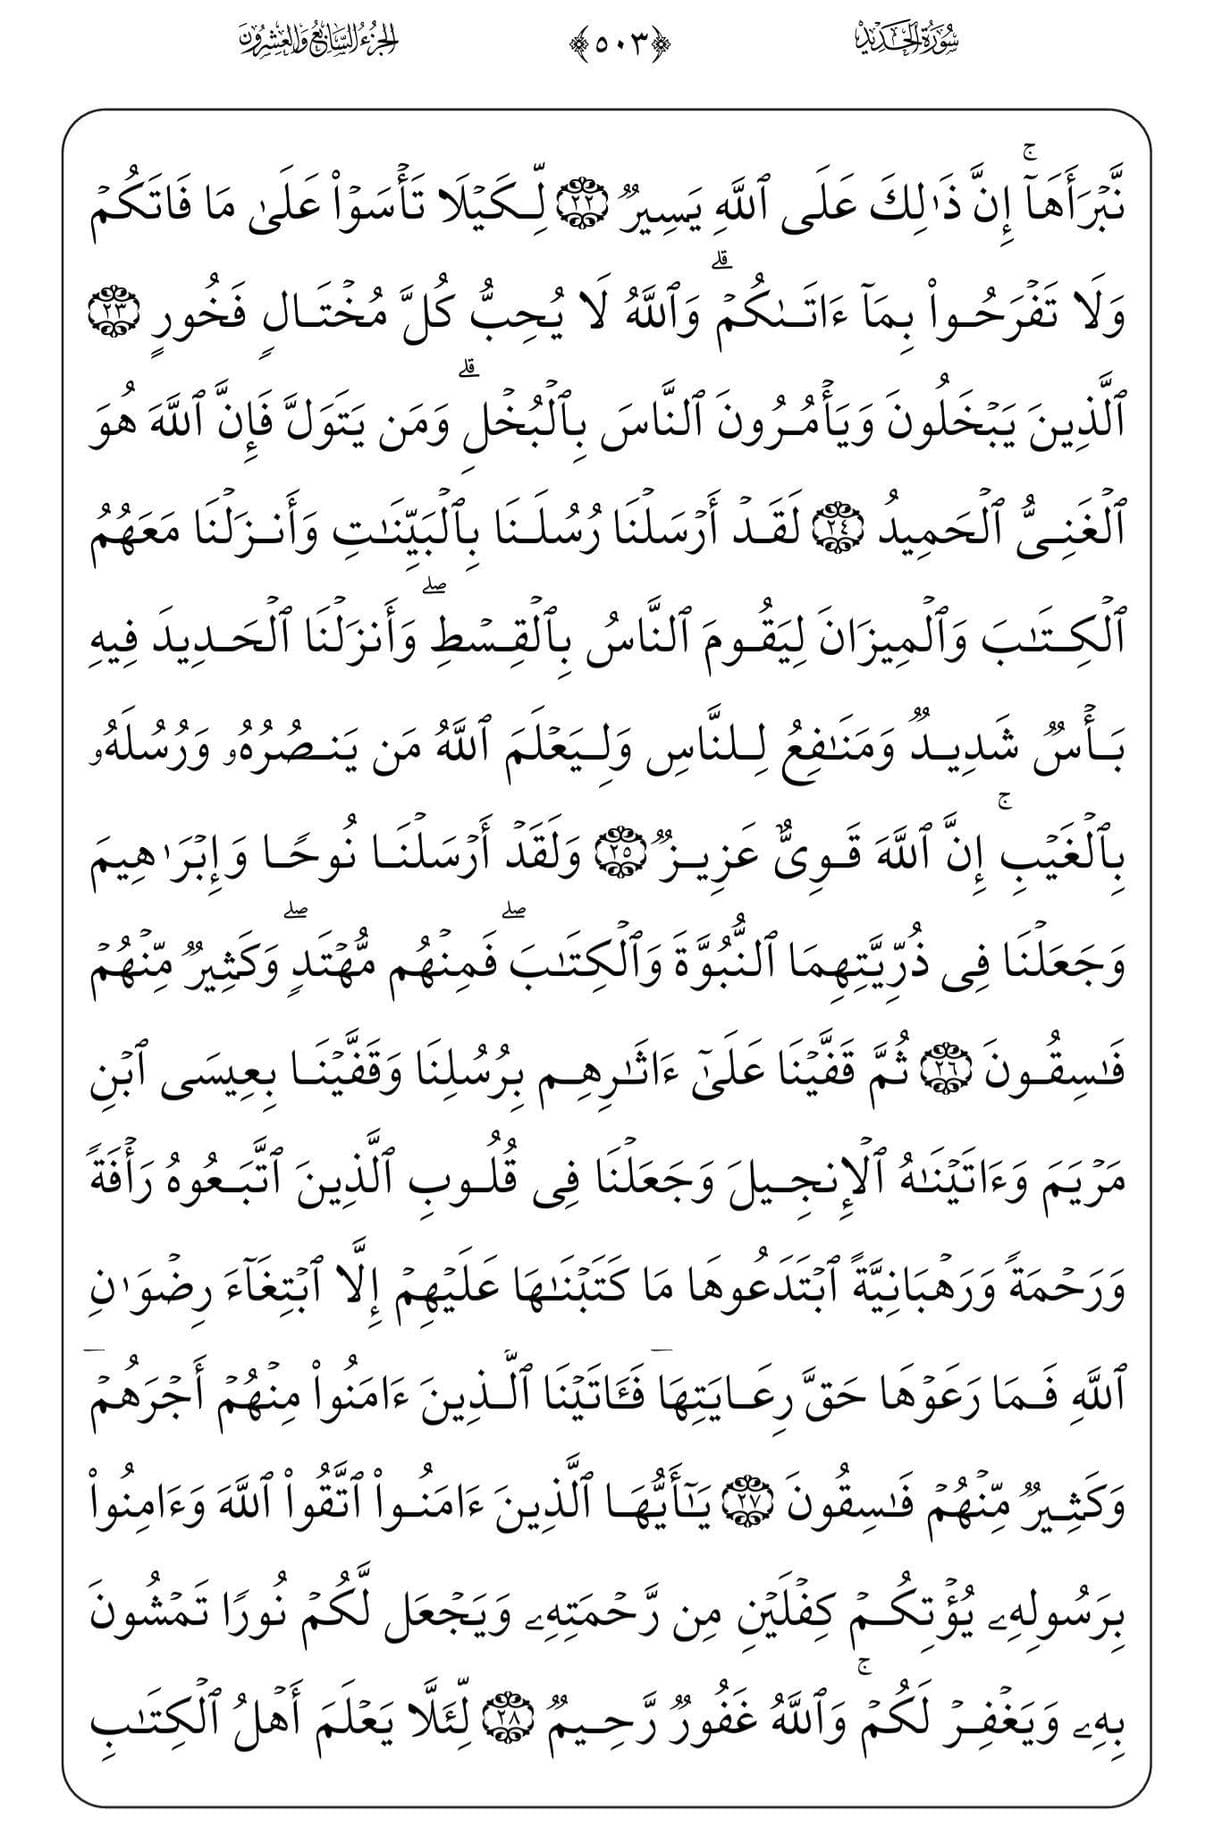 سُورَةُ الحَدِيدِ ﴿٥٠٣﴾ الجُزْءُ السَّابِعُ وَالعِشْرُونَ
نَّبۡرَأَهَآۚ إِنَّ ذَٰلِكَ عَلَى ٱللَّهِ يَسِيرٞ ٢٢ لِّكَيۡلَا تَأۡسَوۡاْ عَلَىٰ مَا فَاتَكُمۡ
وَلَا تَفۡرَحُواْ بِمَآ ءَاتَىٰكُمۡۗ وَٱللَّهُ لَا يُحِبُّ كُلَّ مُخۡتَالٖ فَخُورٍ ٢٣
ٱلَّذِينَ يَبۡخَلُونَ وَيَأۡمُرُونَ ٱلنَّاسَ بِٱلۡبُخۡلِۗ وَمَن يَتَوَلَّ فَإِنَّ ٱللَّهَ هُوَ
ٱلۡغَنِيُّ ٱلۡحَمِيدُ ٢٤ لَقَدۡ أَرۡسَلۡنَا رُسُلَنَا بِٱلۡبَيِّنَٰتِ وَأَنزَلۡنَا مَعَهُمُ
ٱلۡكِتَٰبَ وَٱلۡمِيزَانَ لِيَقُومَ ٱلنَّاسُ بِٱلۡقِسۡطِۖ وَأَنزَلۡنَا ٱلۡحَدِيدَ فِيهِ
بَأۡسٞ شَدِيدٞ وَمَنَٰفِعُ لِلنَّاسِ وَلِيَعۡلَمَ ٱللَّهُ مَن يَنصُرُهُۥ وَرُسُلَهُۥ
بِٱلۡغَيۡبِۚ إِنَّ ٱللَّهَ قَوِيٌّ عَزِيزٞ ٢٥ وَلَقَدۡ أَرۡسَلۡنَا نُوحٗا وَإِبۡرَٰهِيمَ
وَجَعَلۡنَا فِي ذُرِّيَّتِهِمَا ٱلنُّبُوَّةَ وَٱلۡكِتَٰبَۖ فَمِنۡهُم مُّهۡتَدٖۖ وَكَثِيرٞ مِّنۡهُمۡ
فَٰسِقُونَ ٢٦ ثُمَّ قَفَّيۡنَا عَلَىٰٓ ءَاثَٰرِهِم بِرُسُلِنَا وَقَفَّيۡنَا بِعِيسَى ٱبۡنِ
مَرۡيَمَ وَءَاتَيۡنَٰهُ ٱلۡإِنجِيلَ وَجَعَلۡنَا فِي قُلُوبِ ٱلَّذِينَ ٱتَّبَعُوهُ رَأۡفَةٗ
وَرَحۡمَةٗ وَرَهۡبَانِيَّةً ٱبۡتَدَعُوهَا مَا كَتَبۡنَٰهَا عَلَيۡهِمۡ إِلَّا ٱبۡتِغَآءَ رِضۡوَٰنِ
ٱللَّهِ فَمَا رَعَوۡهَا حَقَّ رِعَايَتِهَاۖ فَـَٔاتَيۡنَا ٱلَّذِينَ ءَامَنُواْ مِنۡهُمۡ أَجۡرَهُمۡۖ
وَكَثِيرٞ مِّنۡهُمۡ فَٰسِقُونَ ٢٧ يَٰٓأَيُّهَا ٱلَّذِينَ ءَامَنُواْ ٱتَّقُواْ ٱللَّهَ وَءَامِنُواْ
بِرَسُولِهِۦ يُؤۡتِكُمۡ كِفۡلَيۡنِ مِن رَّحۡمَتِهِۦ وَيَجۡعَل لَّكُمۡ نُورٗا تَمۡشُونَ
بِهِۦ وَيَغۡفِرۡ لَكُمۡۚ وَٱللَّهُ غَفُورٞ رَّحِيمٞ ٢٨ لِّئَلَّا يَعۡلَمَ أَهۡلُ ٱلۡكِتَٰبِ